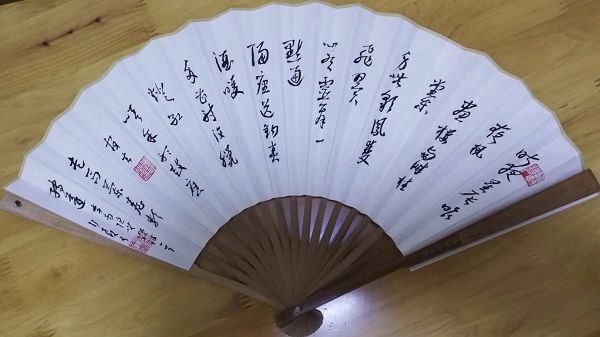 昨夜星辰昨
夜風
畫樓西畔桂
堂東
身無彩鳳雙
飛翼
心有靈犀一
點通
隔座送鉤春
酒暖
分曹射覆蠟
燈紅
嗟余聽鼓應
官去
走馬蘭臺類轉
蓬
李商隐